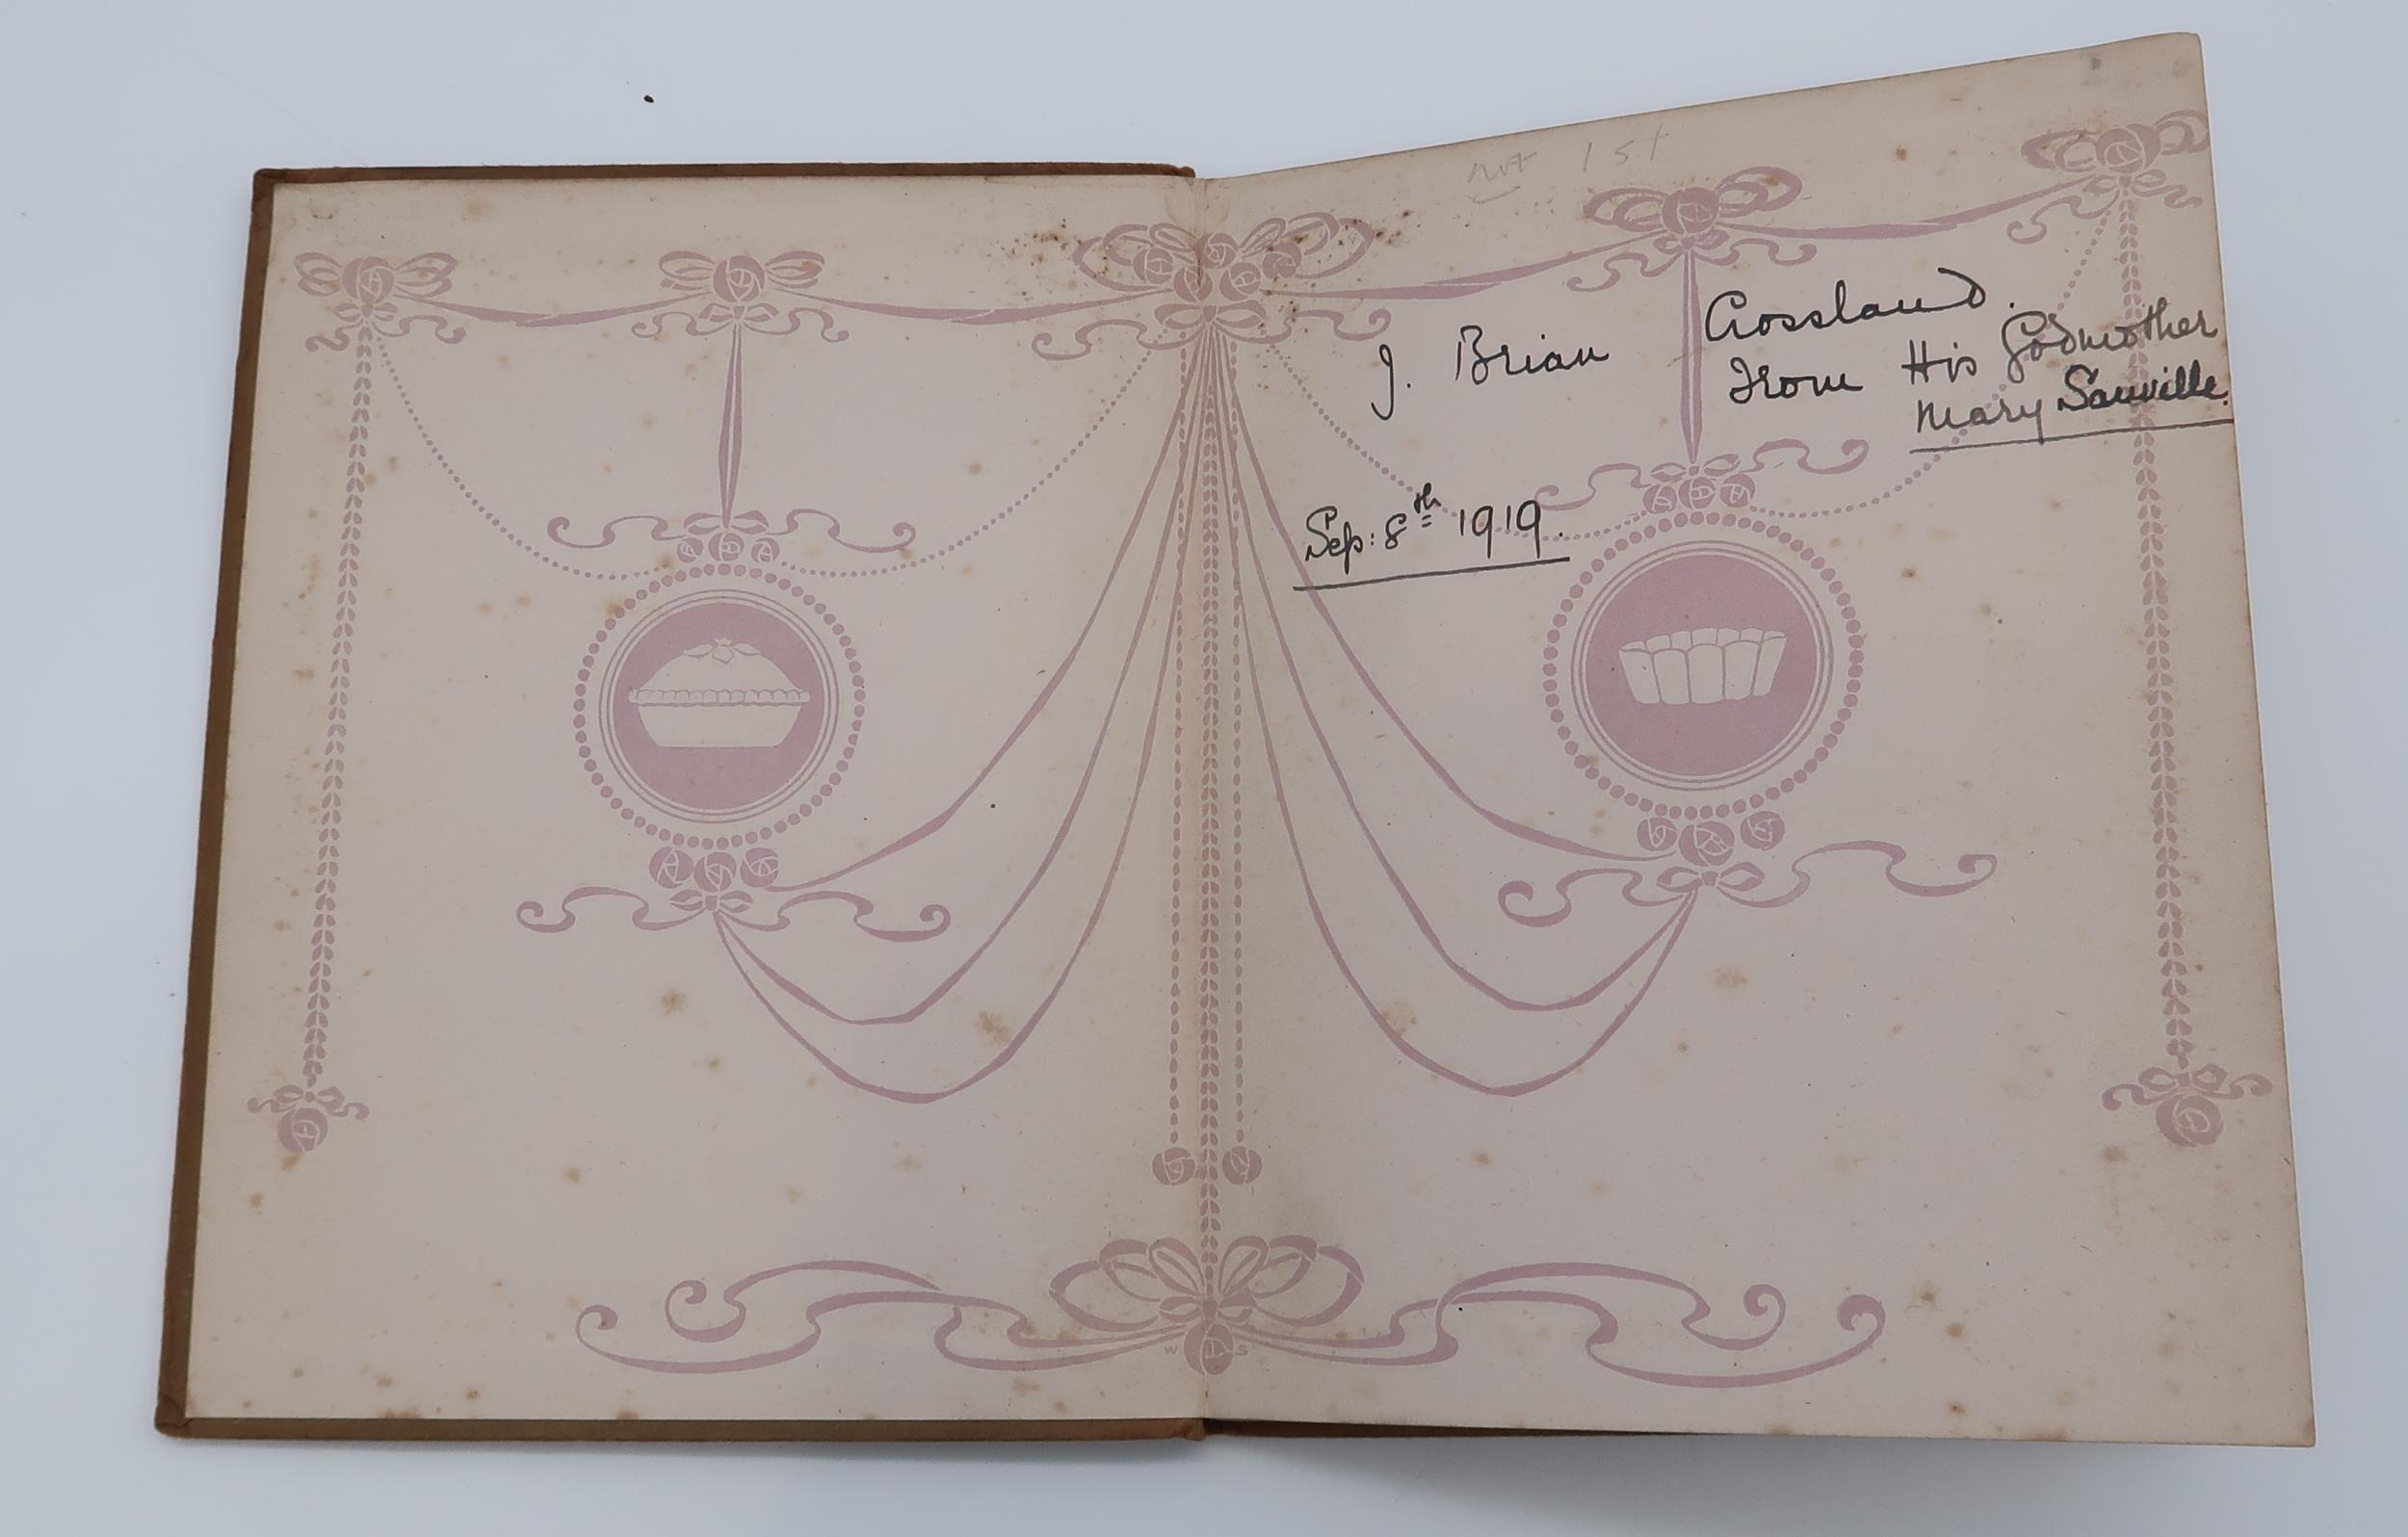 not 1st
J. Brian Crossland.
From His Godmother
Mary Sanville.
Sep: 8th 1919.
W S